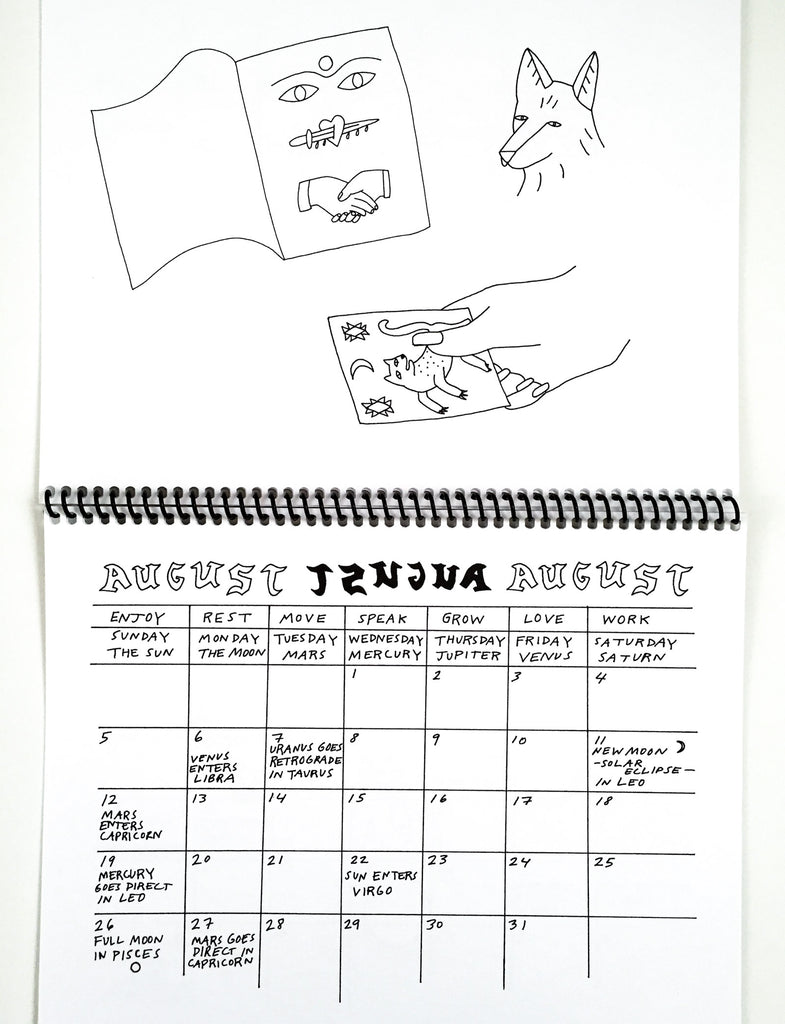 AUGUST AUGUST AUGUST
ENJOY REST MOVE SPEAK GROW LOVE WORK
SUNDAY MONDAY TUESDAY WEDNESDAY THURSDAY FRIDAY SATURDAY
THE SUN THE MOON MARS MERCURY JUPITER VENUS SATURN
1 2 3 4
5
6
VENUS
ENTERS
LIBRA
7
URANUS GOES
RETROGRADE
IN TAURUS
8
9
10
11
NEW MOON
-SOLAR
ECLIPSE-
IN LEO
12
MARS
ENTERS
CAPRICORN
13
14
15
16
17
18
19
MERCURY
GOES DIRECT
IN LEO
20
21
22
SUN ENTERS
VIRGO
23
24
25
26
FULL MOON
IN PISCES
27
MARS GOES
DIRECT IN
CAPRICORN
28
29
30
31